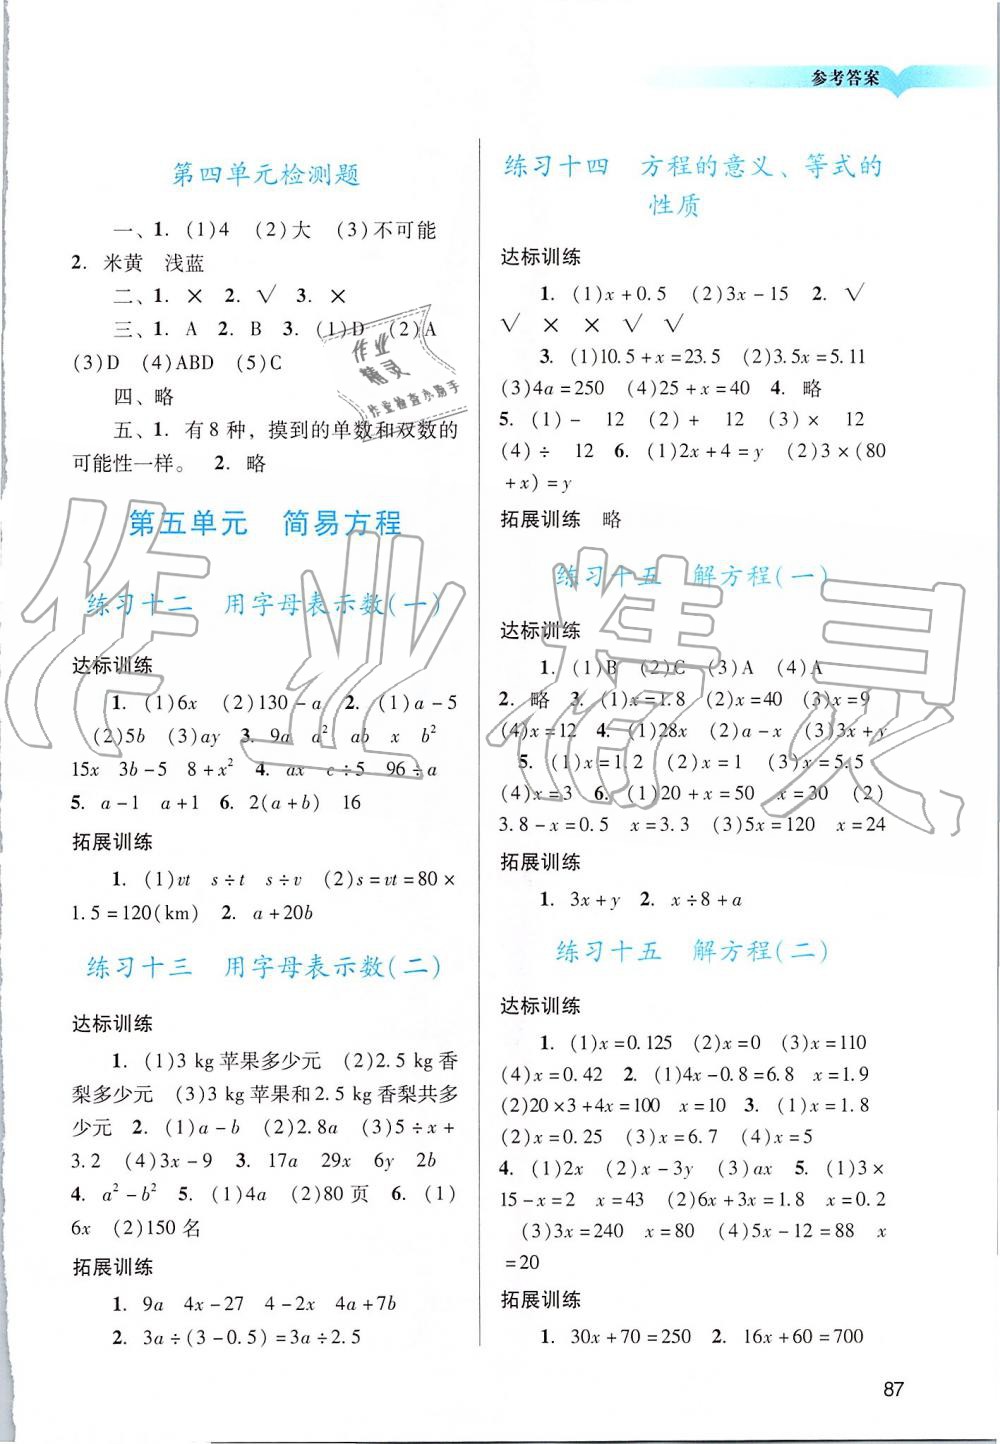 参考答案
第四单元检测题
一、1. (1)4 (2)大 (3)不可能
2. 米黄 浅蓝
二、1. × 2. √ 3. ×
三、1. A 2. B 3. (1)D (2)A
(3)D (4)ABD (5)C
四、略
五、1. 有8种，摸到的单数和双数的
可能性一样。 2. 略
第五单元 简易方程
练习十二 用字母表示数(一)
达标训练
1. (1)6x (2)130-a 2. (1)a-5
(2)5b (3)ay 3. 9a a² ab x b²
15x 3b-5 8+x² 4. ax c÷5 96÷a
5. a-1 a+1 6. 2(a+b) 16
拓展训练
1. (1)vt s÷t s÷v (2)s=vt=80×
1.5=120(km) 2. a+20b
练习十三 用字母表示数(二)
达标训练
1. (1)3 kg苹果多少元 (2)2.5 kg香
梨多少元 (3)3 kg苹果和2.5 kg香梨共多
少元 2. (1)a-b (2)2.8a (3)5÷x+
3.2 (4)3x-9 3. 17a 29x 6y 2b
4. a²-b² 5. (1)4a (2)80页 6. (1)
6x (2)150名
拓展训练
1. 9a 4x-27 4-2x 4a+7b
2. 3a÷(3-0.5)=3a÷2.5
练习十四 方程的意义、等式的
性质
达标训练
1. (1)x+0.5 (2)3x-15 2. √
√ × × √ √
3. (1)10.5+x=23.5 (2)3.5x=5.11
(3)4a=250 (4)25+x=40 4. 略
5. (1)- 12 (2)+ 12 (3)× 12
(4)÷ 12 6. (1)2x+4=y (2)3×(80
+x)=y
拓展训练 略
练习十五 解方程(一)
达标训练
1. (1)B (2)C (3)A (4)A
2. 略 3. (1)x=1.8 (2)x=40 (3)x=9
(4)x=12 4. (1)28x (2)a-x (3)3x+y
5. (1)x=1.2 (2)x=1 (3)x=5.5
(4)x=3 6. (1)20+x=50 x=30 (2)
3.8-x=0.5 x=3.3 (3)5x=120 x=24
拓展训练
1. 3x+y 2. x÷8+a
练习十五 解方程(二)
达标训练
1. (1)x=0.125 (2)x=0 (3)x=110
(4)x=0.42 2. (1)4x-0.8=6.8 x=1.9
(2)20×3+4x=100 x=10 3. (1)x=1.8
(2)x=0.25 (3)x=6.7 (4)x=5
4. (1)2x (2)x-3y (3)ax 5. (1)3×
15-x=2 x=43 (2)6x+3x=1.8 x=0.2
(3)3x=240 x=80 (4)5x-12=88 x
=20
拓展训练
1. 30x+70=250 2. 16x+60=700
87
作业精灵
作业
精灵
作业检查小助手